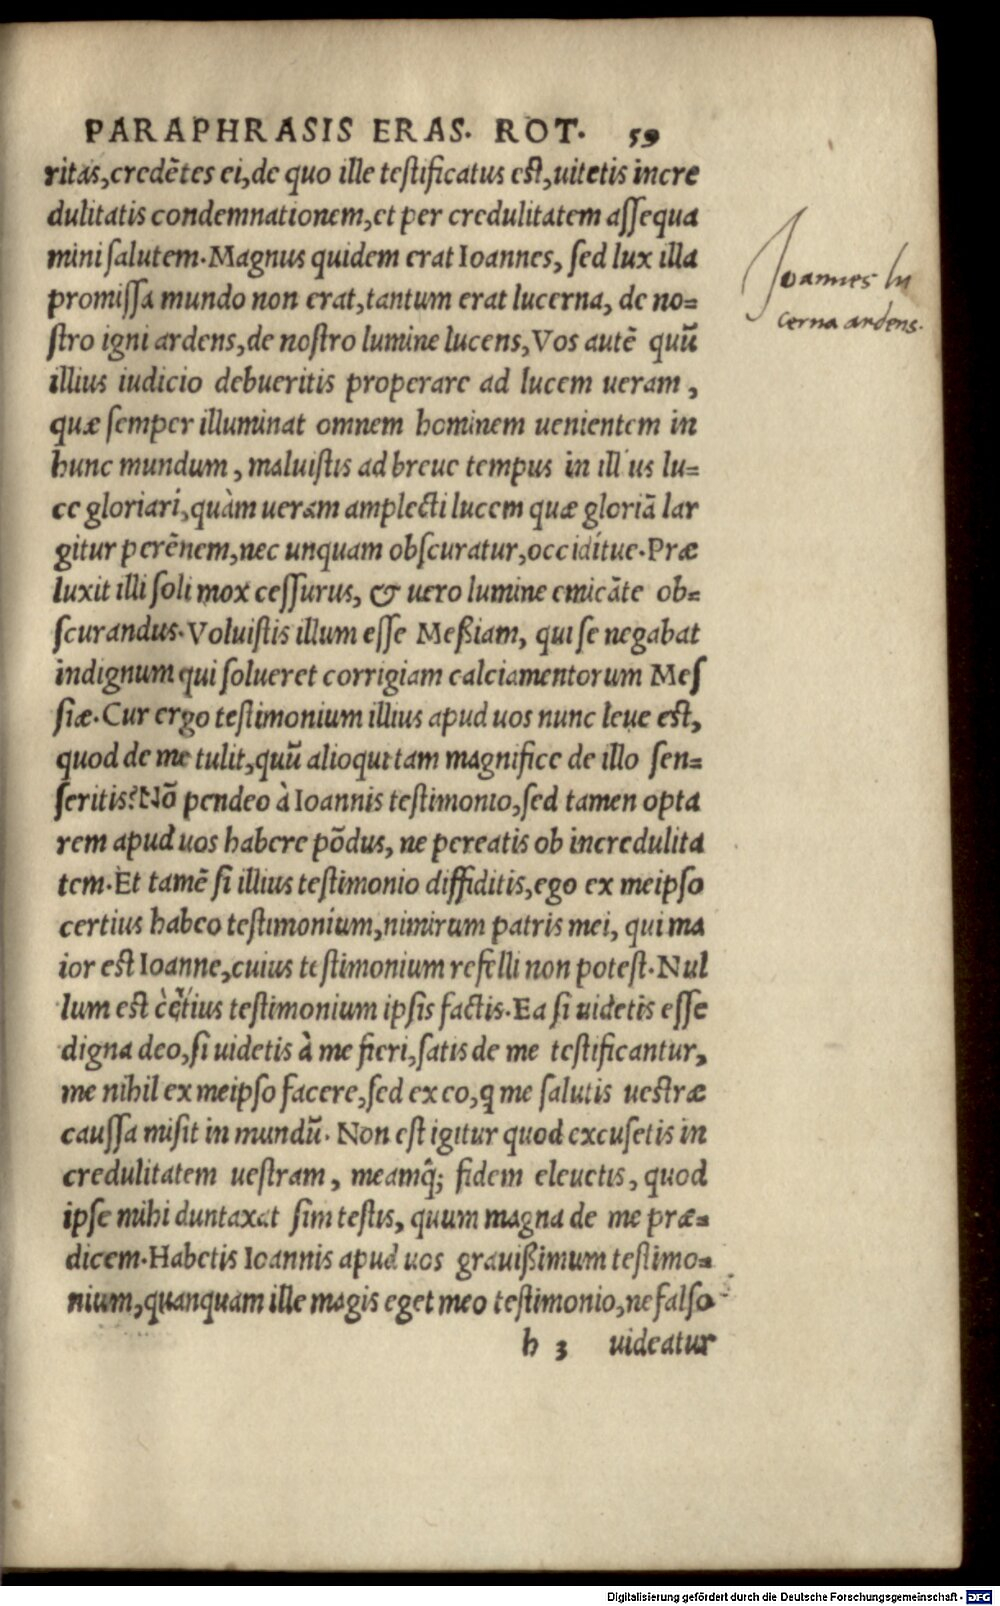 PARAPHRASIS ERAS. ROT. 59
ritas,credẽtes ei,de quo ille testificatus est,uitetis incre
dulitatis condemnationem,et per credulitatem assequa
mini salutem.Magnus quidem erat Ioannes, sed lux illa
promissa mundo non erat,tantum erat lucerna, de no=
stro igni ardens,de nostro lumine lucens,Vos autẽ quũ
illius iudicio debueritis properare ad lucem ueram,
quæ semper illuminat omnem hominem uenientem in
hunc mundum, maluistis ad breue tempus in ill us lu=
ce gloriari,quàm ueram amplecti lucem quæ gloriã lar
gitur perẽnem,nec unquam obscuratur,occiditue.Præ
luxit illi soli mox cessurus, & uero lumine emicãte ob=
scurandus.Voluistis illum esse Meßiam, qui se negabat
indignum qui solueret corrigiam calciamentorum Mes
siæ.Cur ergo testimonium illius apud uos nunc leue est,
quod de me tulit,quũ alioqui tam magnifice de illo sen=
seritis?Nõ pendeo à Ioannis testimonio,sed tamen opta
rem apud uos habere põdus, ne pereatis ob incredulita
tem.Et tamẽ si illius testimonio diffiditis,ego ex meipso
certius habeo testimonium,nimirum patris mei, qui ma
ior est Ioanne,cuius testimonium refelli non potest.Nul
lum est certius testimonium ipsis factis.Ea si uidetis esse
digna deo,si uidetis à me fieri,satis de me testificantur,
me nihil ex meipso facere,sed ex eo,q me salutis uestræ
caussa misit in mundũ. Non est igitur quod excusetis in
credulitatem uestram, meamq̃; fidem eleuetis, quod
ipse mihi duntaxat sim testis, quum magna de me præ=
dicem.Habetis Ioannis apud uos grauißimum testimo=
nium,quanquam ille magis eget meo testimonio,ne falso
h 3 uideatur
Ioannes lu
cerna ardens.
Digitalisierung gefördert durch die Deutsche Forschungsgemeinschaft - DFG